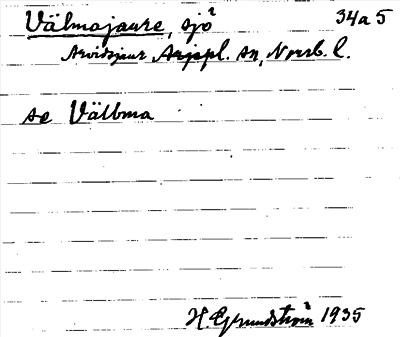 Välmajaure, sjö 34a5
Arvidsjaur Arjepl. sn, Norrb. l.
se Välbma
H. Grundström 1935